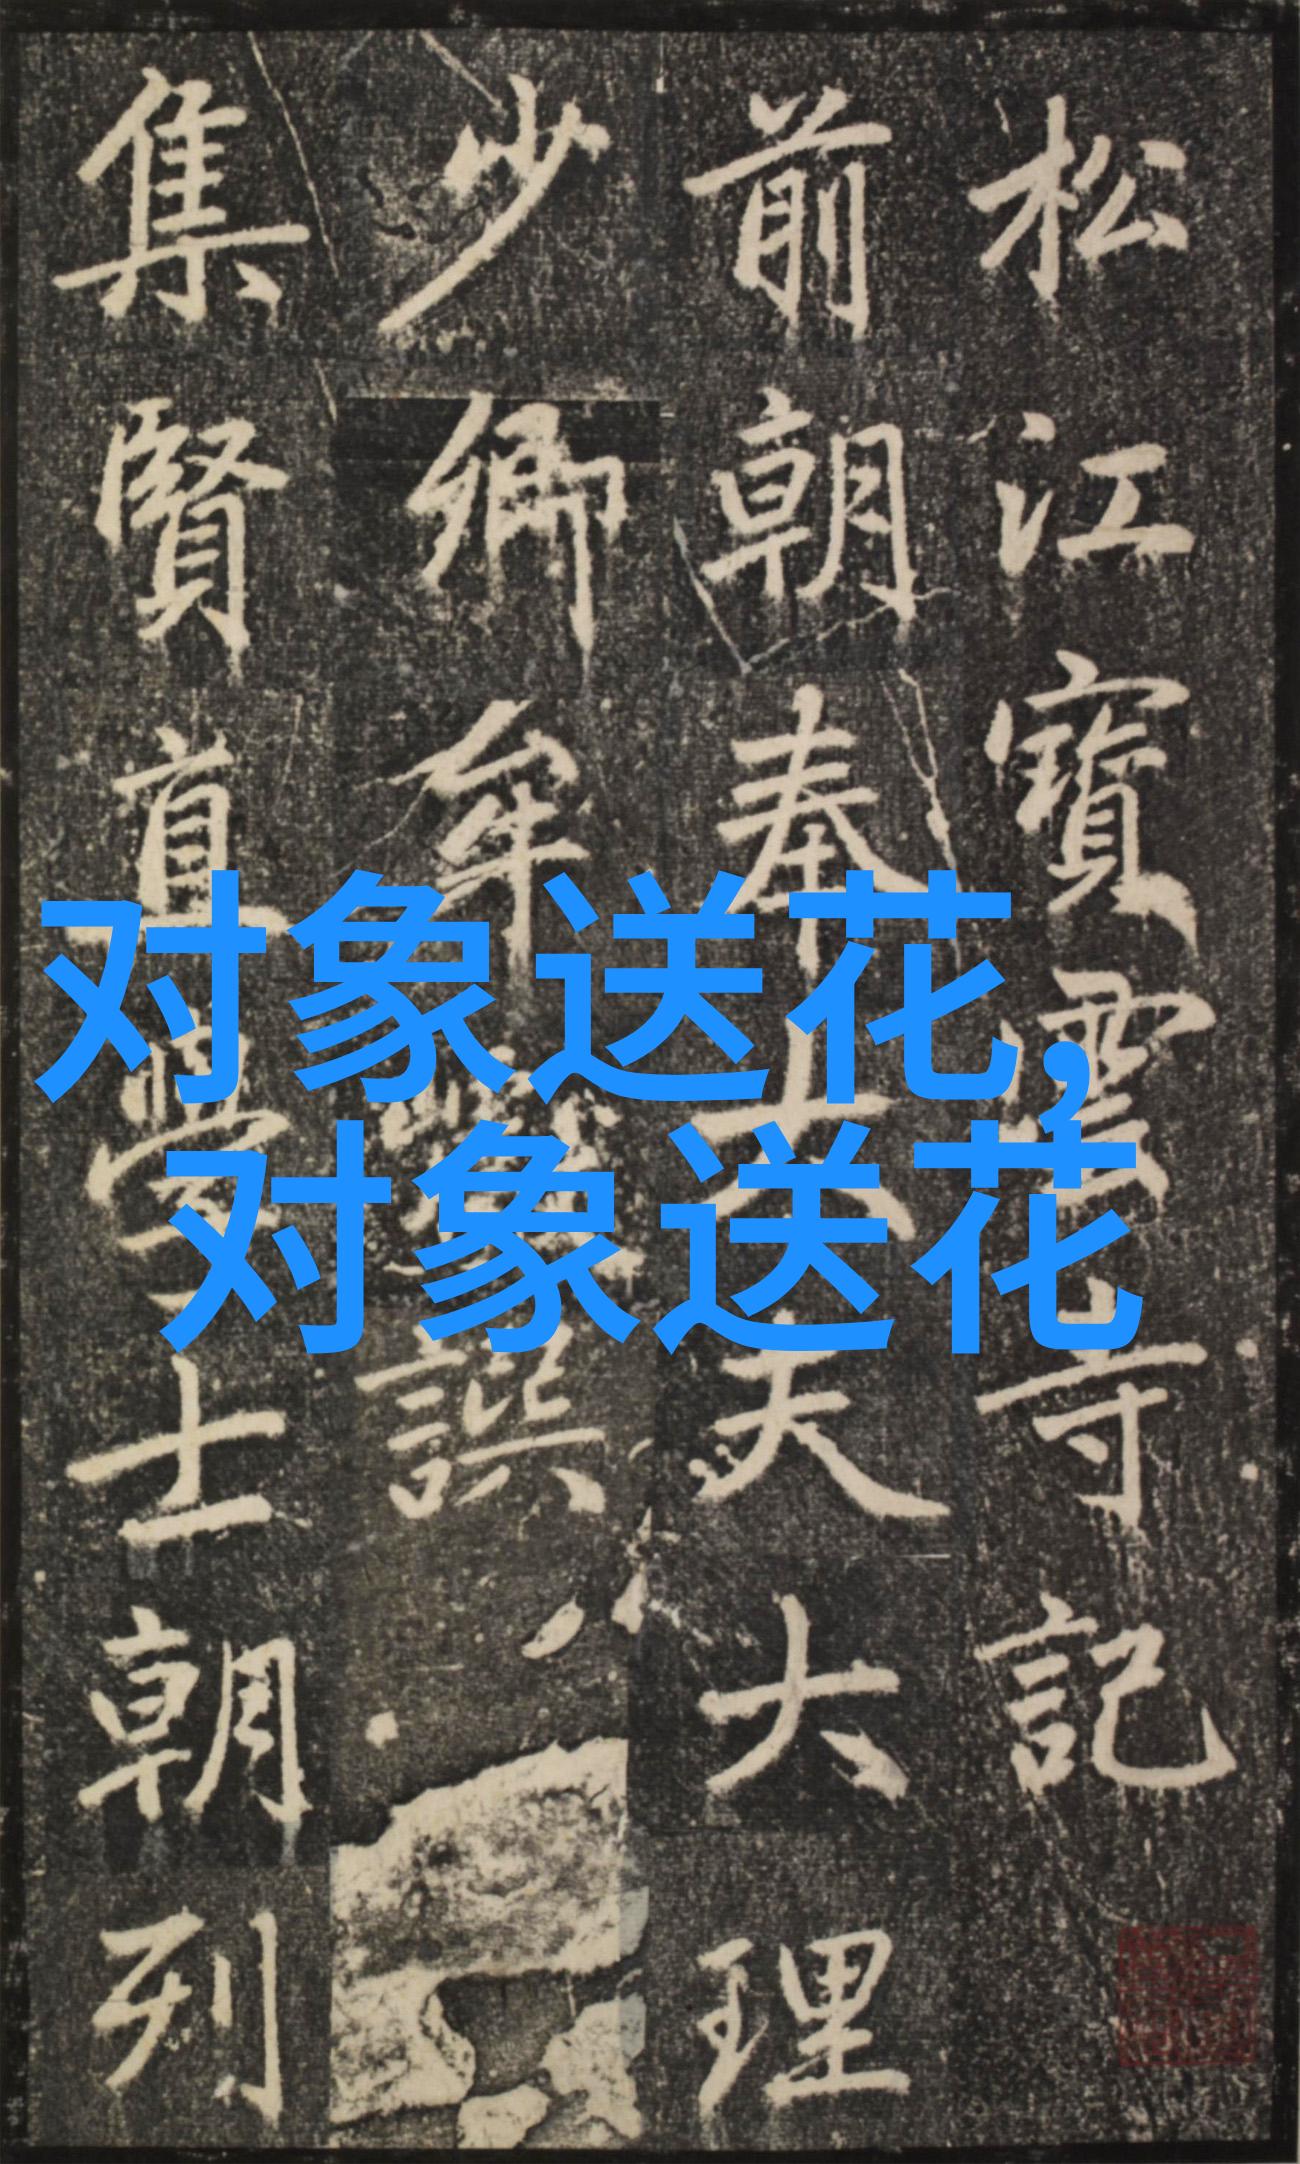 松江寶雲寺記
前朝奉大夫大理
少卿牟巘譔
集賢直學士朝列
对象送花,
对象送花